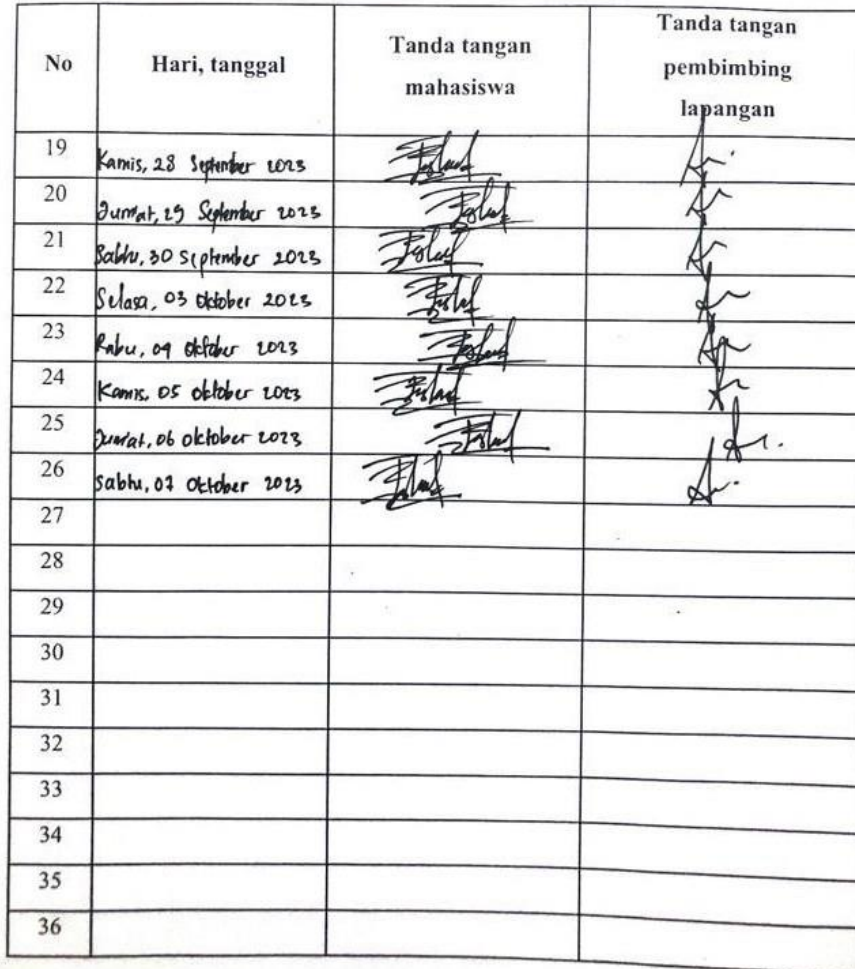 No Hari, tanggal Tanda tangan mahasiswa Tanda tangan pembimbing lapangan
19 Kamis, 28 September 2023
20 Jum'at, 29 September 2023
21 Sabtu, 30 September 2023
22 Selasa, 03 Oktober 2023
23 Rabu, 04 Oktober 2023
24 Kamis, 05 Oktober 2023
25 Jum'at, 06 Oktober 2023
26 Sabtu, 07 Oktober 2023
27
28
29
30
31
32
33
34
35
36